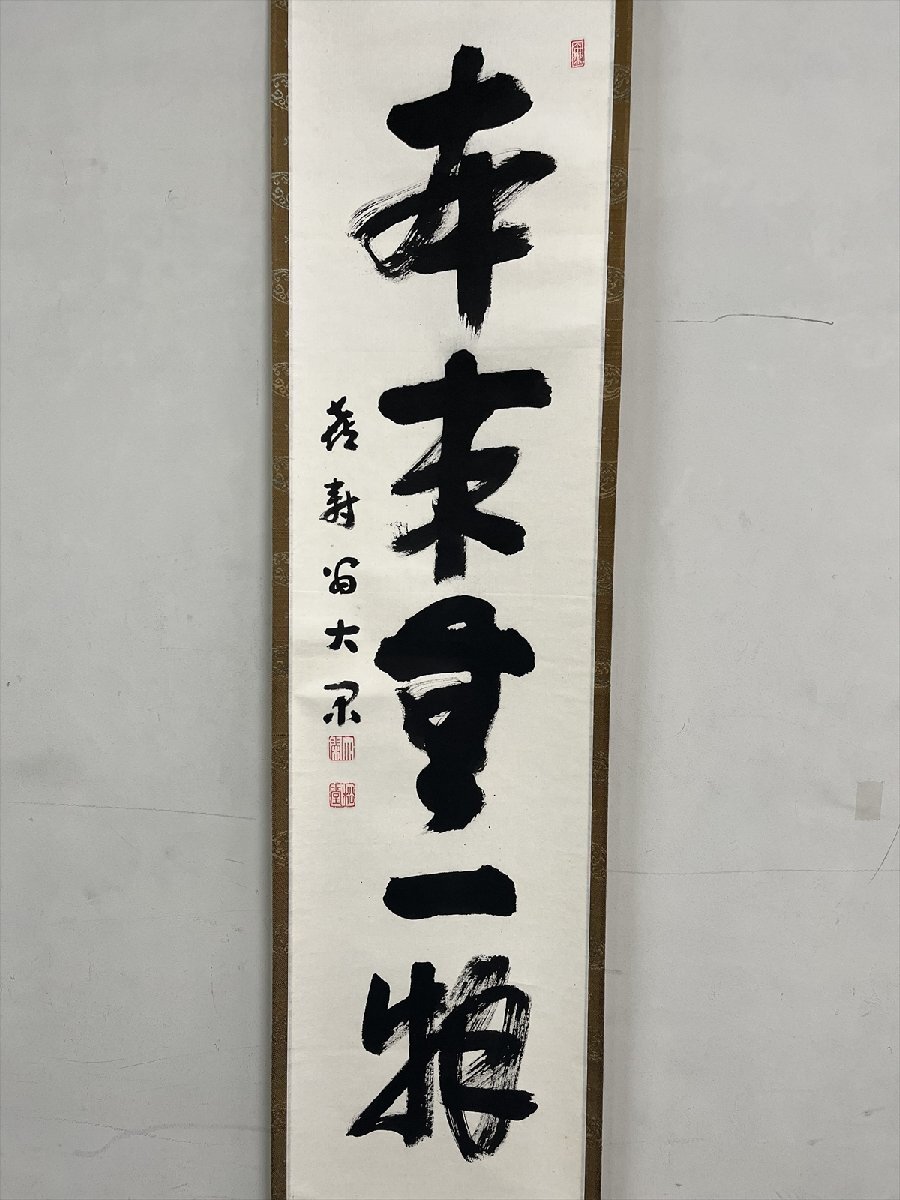 本来無一物
喜寿翁大果